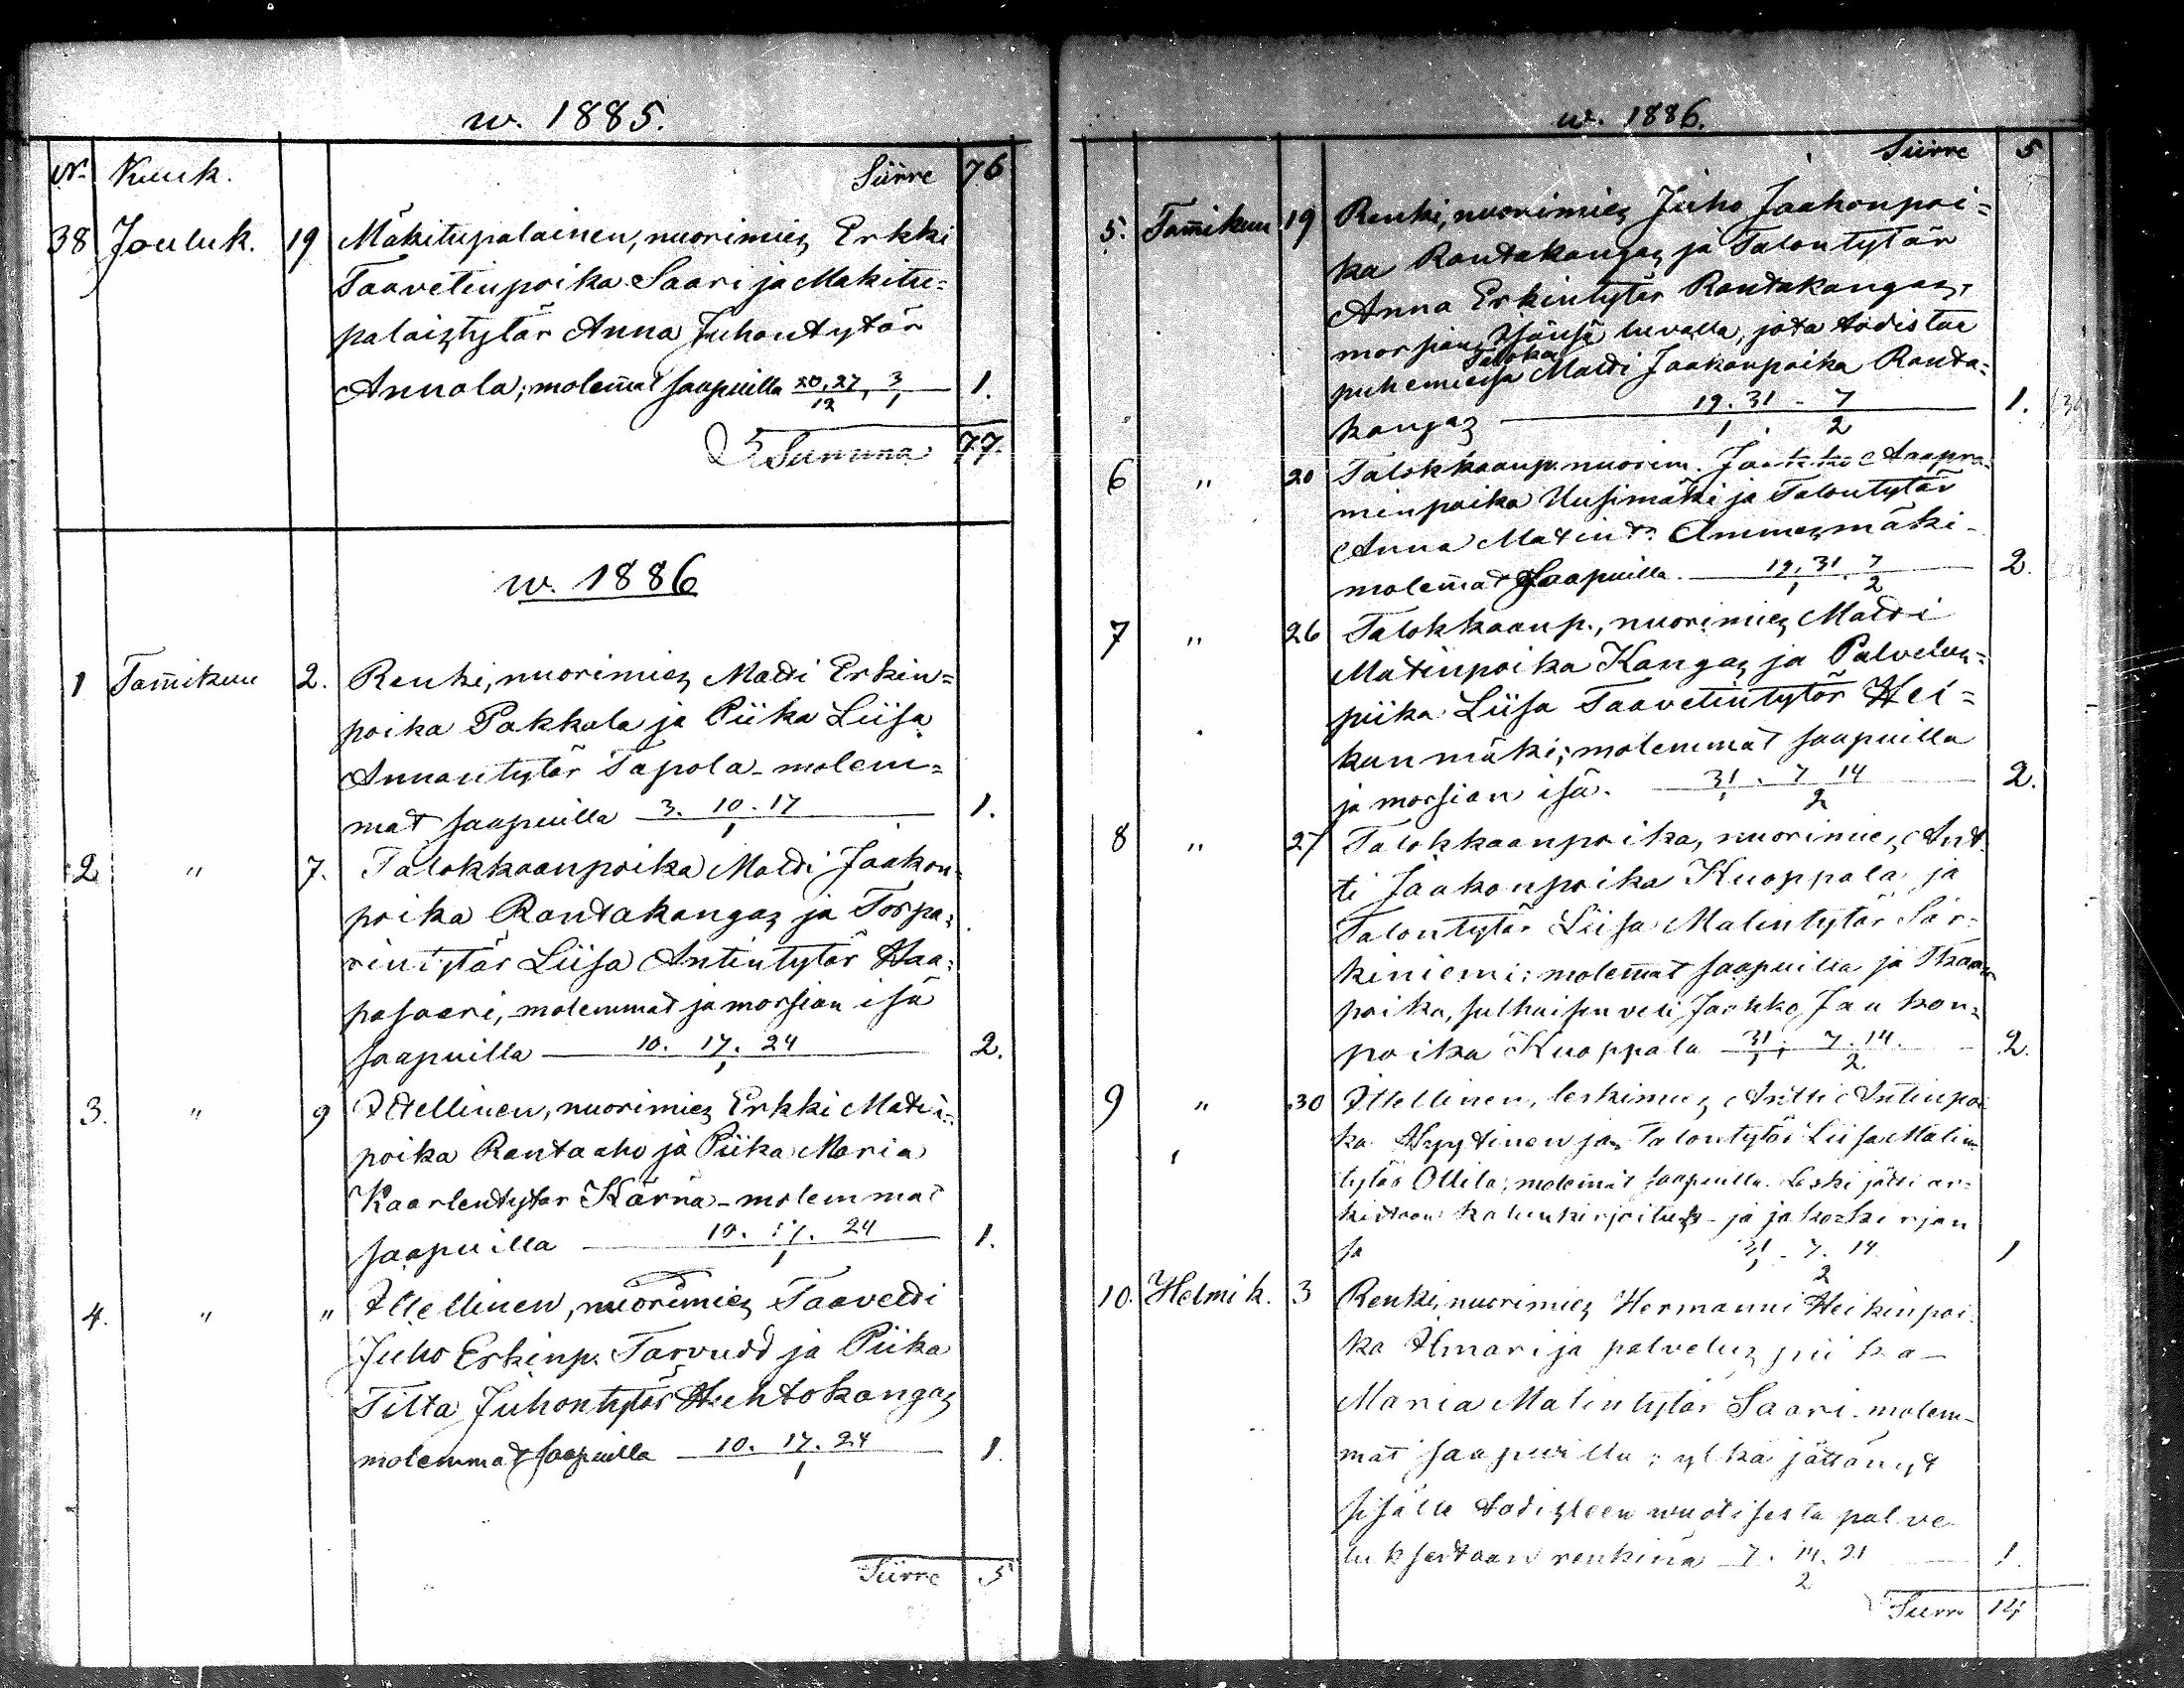 w. 1885.
No Kuuk. Siirre 76
38 Jouluk. 19 Mäkitupalainen, nuorimies Erkki
Taavetinpoika Saari ja Mäkitu=
palaistytär Anna Juhontytär
Annala; molem̅at saapuilla 20, 27, 3 1.
12 1
Summa 77.
w. 1886
1 Tam̅ikuu 2. Renki, nuorimies Matti Erkin=
poika Pakkala ja Piika Liisa
Annantytär Tapola - molem=
mat saapuilla 3. 10. 17 1.
1
2 " 7. Talokkaanpoika Matti Jaakon=
poika Rantakangas ja Torpa=
rintytär Liisa Antintytär Haa=
pasaari, molemmat ja morsian isä
saapuilla 10. 17. 24 2.
1
3. " 9 Itellinen, nuorimies Erkki Matin=
poika Rantaaho ja Piika Maria
Kaarlentytär Kärnä - molemmat
saapuilla 10. 17. 24 1.
1
4. " " Itellinen, nuorimies Taavetti
Juho Erkinp. Tarvudd ja Piika
Tilta Juhontytär Huhtakangas
molemmat saapuilla 10. 17. 24 1.
1
Siirre 5
w. 1886.
Siirre 5
5. Tam̅ikuu 19 Renki, nuorimies Juho Jaakonpoi=
ka Rantakangas ja Talontytär
Anna Erkintytär Rantakangas,
morsian isänsä luvalla, jota todistaa
Taloka
puhemiessä Matti Jaakonpoika Ranta=
kangas 19. 31 - 7 1.
1 2
6 " 20 Talokkaanp. nuorim. Jaakko Aapra=
minpoika Uusimäki ja Talontytär
Anna Matint. Ammesmäki -
molem̅at saapuilla. 19. 31. 7 2.
1 2
7 " 26 Talokkaanp., nuorimies Matti
Matinpoika Kangas ja Palvelus=
piika Liisa Taavetintytär Hei=
kunmäki; molemmat saapuilla
ja morsian isä. 31. 7 14 2.
1 2
8 " 27 Talokkaanpoika, nuorimies Ant=
ti Jaakonpoika Kuoppala ja
Talontytär Liisa Matintytär Sär=
kiniemi; molem̅at saapuilla ja Tkaan
poika, sulhaisen veli Jaakko Jaakon=
poika Kuoppala 31. 7. 14. 2.
1 2
9 " 30 Itellinen, leskimies Antti Antinpoi
ka Hyytinen ja Talontytär Liisa Matin
tytär Ollila; molem̅at saapuilla. Leski jätti ar=
kistoon kalunkirjoitus - ja jakoskirjan
sa 31 - 7. 14 1
1 2
10. Helmik. 3 Renki, nuorimies Hermanni Heikinpoi
ka Ilmari ja palvelus piika -
Maria Matintytär Saari - molem-
mat saapuilla; ylkä jättänyt
sisälle todisteen wuotisesta palve
luksestaan renkinä 7. 14. 21 1.
2
Siirre 14